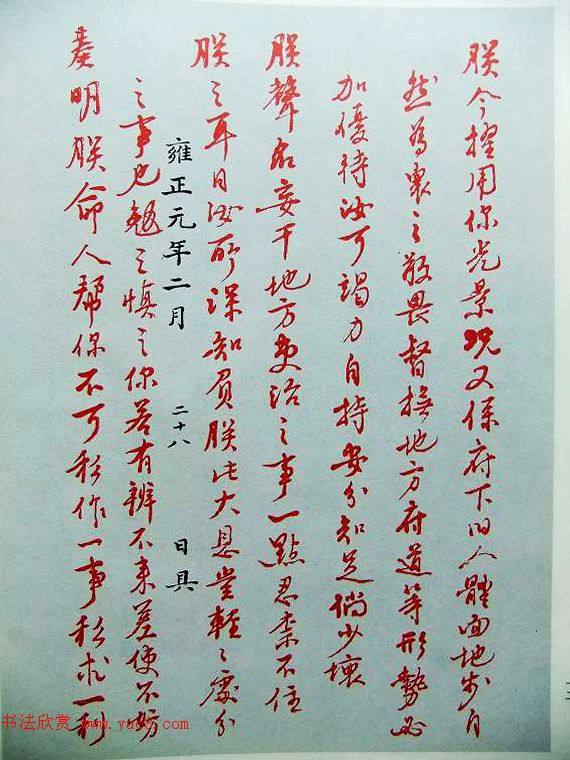 朕今擢用你光景況又係府下旧人體面地步自
然為衆之敬畏督撫地方府道等形勢必
加優待汝可竭力自持安分知足倘少壞
朕聲名妄干地方吏治之事一點忍耐不住
朕之耳目汝所深知負朕此大恩豈輕々處分
雍正元年二月 二十八 日具
之事也勉之慎之你若有辦不來差使不妨
奏明朕命人幫你不可私作一事私求一利
书法欣赏